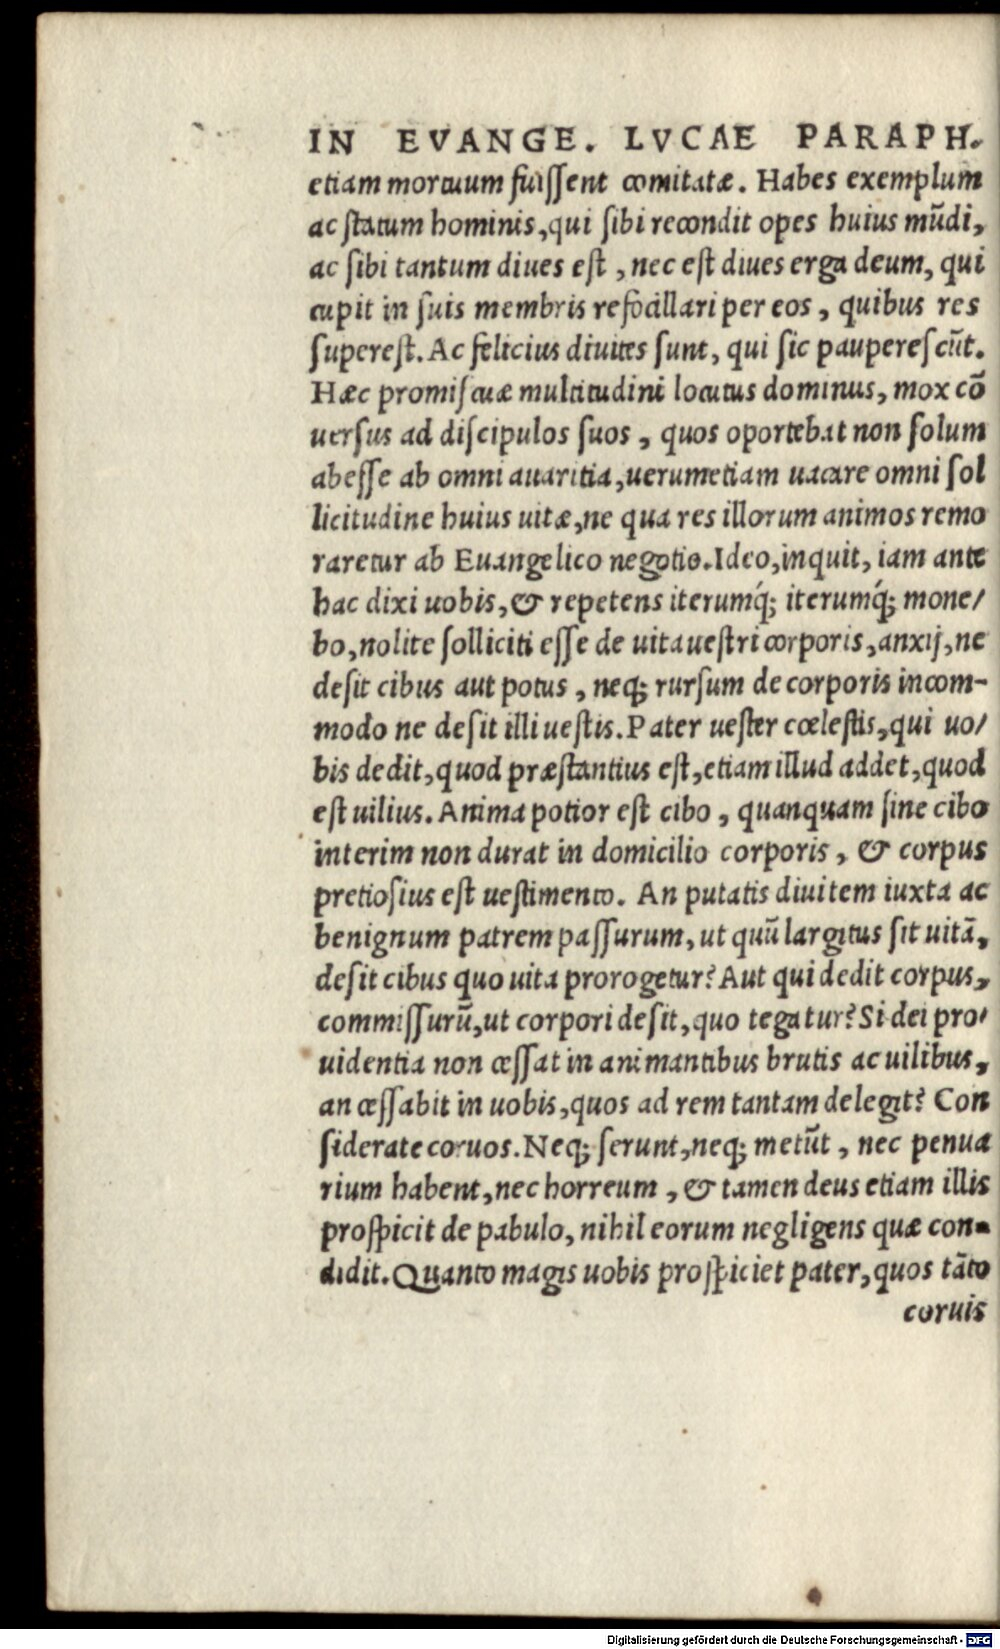 IN EVANGE. LVCAE PARAPH.
etiam mortuum fuiſſent comitatæ. Habes exemplum
ac ſtatum hominis, qui ſibi recondit opes huius mūdi,
ac ſibi tantum diues eſt, nec eſt diues erga deum, qui
cupit in ſuis membris refocillari per eos, quibus res
ſupereſt. Ac felicius diuites ſunt, qui ſic paupereſcūt.
Hæc promiſcuæ multitudini locutus dominus, mox cō
uerſus ad diſcipulos ſuos, quos oportebat non ſolum
abeſſe ab omni auaritia, uerumetiam uacare omni ſol
licitudine huius uitæ, ne qua res illorum animos remo
raretur ab Euangelico negotio. Ideo, inquit, iam ante
hac dixi uobis, & repetens iterumq́; iterumq́; mone/
bo, nolite ſolliciti eſſe de uita ueſtri corporis, anxij, ne
deſit cibus aut potus, neq; rurſum de corporis incom-
modo ne deſit illi ueſtis. Pater ueſter cœleſtis, qui uo/
bis dedit, quod præſtantius eſt, etiam illud addet, quod
eſt uilius. Anima potior eſt cibo, quanquam ſine cibo
interim non durat in domicilio corporis, & corpus
pretioſius eſt ueſtimento. An putatis diuitem iuxta ac
benignum patrem paſſurum, ut quū largitus ſit uitā,
deſit cibus quo uita prorogetur? Aut qui dedit corpus,
commiſſurū, ut corpori deſit, quo tegatur? Si dei pro/
uidentia non ceſſat in animantibus brutis ac uilibus,
an ceſſabit in uobis, quos ad rem tantam delegit? Con
ſiderate coruos. Neq; ſerunt, neq; metūt, nec penua
rium habent, nec horreum, & tamen deus etiam illis
proſpicit de pabulo, nihil eorum negligens quæ con-
didit. Quanto magis uobis proſpiciet pater, quos tāto
coruis
Digitalisierung gefördert durch die Deutsche Forschungsgemeinschaft - DFG